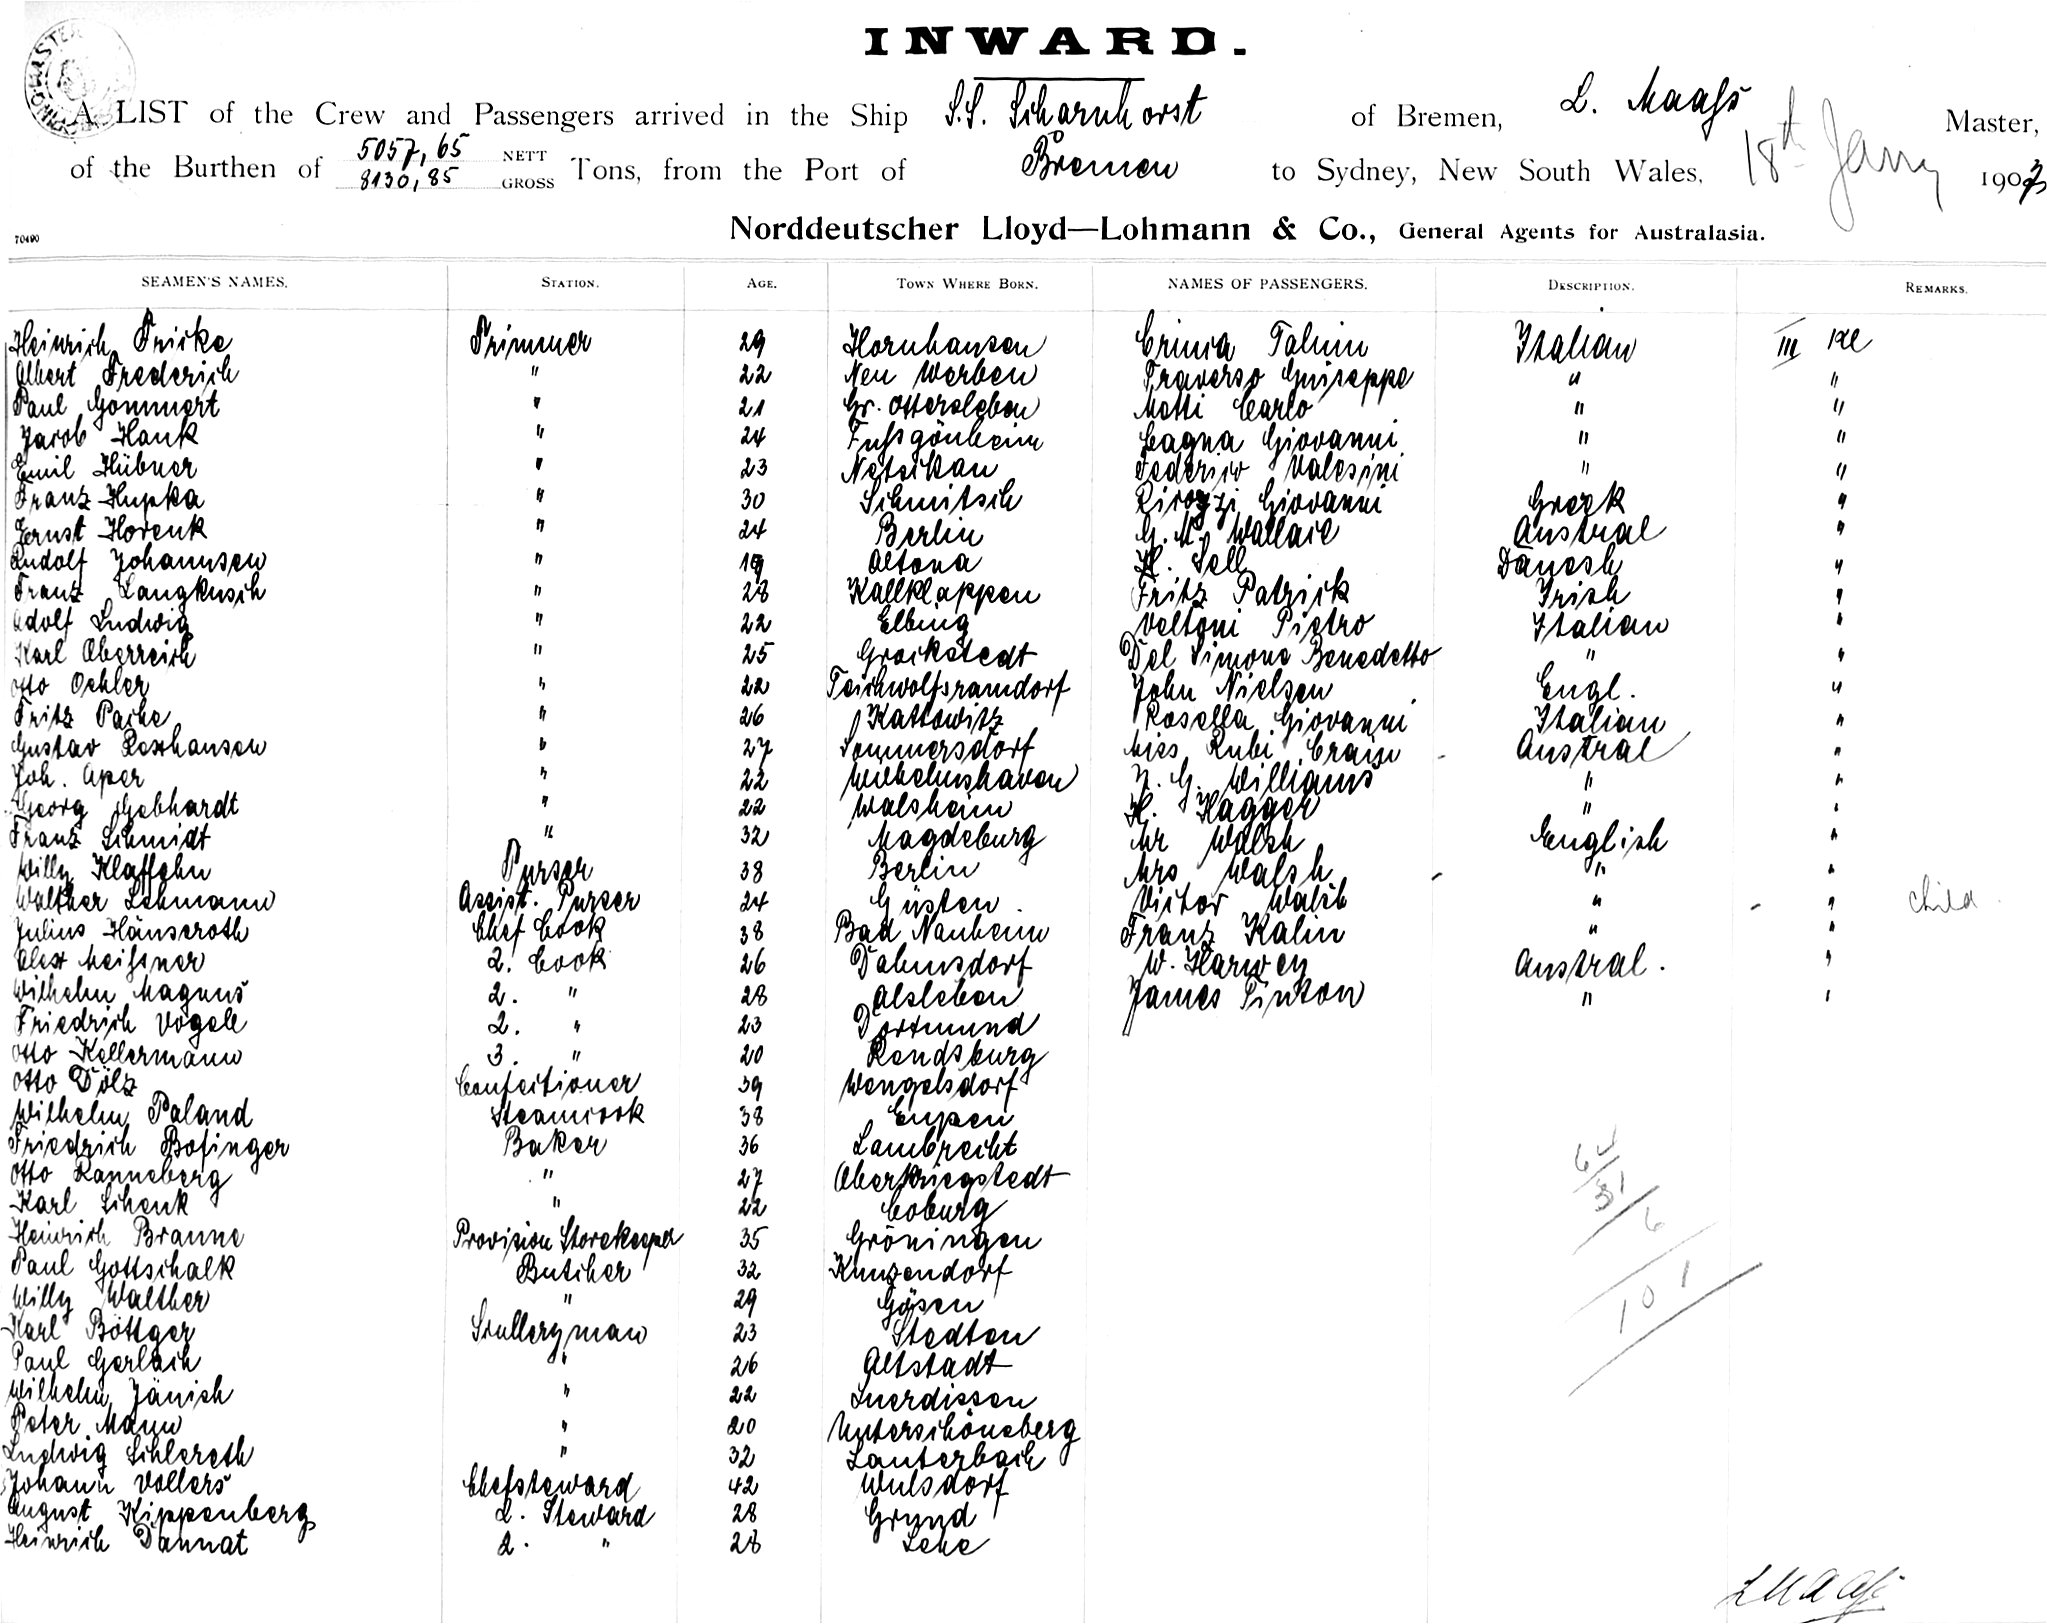 INWARD.
A LIST of the Crew and Passengers arrived in the Ship S.S. Scharnhorst of Bremen, L. Maaſs Master,
of the Burthen of 5057,65 NETT 8130,85 GROSS Tons, from the Port of Bremen to Sydney, New South Wales, 18th Jany 1903
70490 Norddeutscher Lloyd—Lohmann & Co., General Agents for Australasia.
SEAMEN'S NAMES. STATION. AGE. TOWN WHERE BORN. NAMES OF PASSENGERS. DESCRIPTION. REMARKS.
Heinrich Fricke Trimmer 29 Hornhausen Tahim Italian III Kl
Albert Frederich " 22 Neu Werben Traverso Guiseppe " "
Paul Gommert " 21 Gr. Ottersleben Motti Carlo " "
Jacob Hauk " 24 Fuſsgönheim Cagna Giovanni " "
Emil Hübner " 23 Netzkau Federico Valesini " "
Franz Hupka " 30 Schmitsch Giovanni Greek "
Ernst Horenk " 24 Berlin G. M. Wallace Austral "
Rudolf Johannsen " 19 Altona H. Sell Danesh "
Franz Langkusch " 28 Kallklappen Fritz Patrick Irish "
Adolf Ludwig " 22 Elbing Veltoni Pietro Italian "
Karl Oberreich " 25 Groikstedt Del Simone Benedetto " "
Otto Oehler " 22 Teichwolfsramdorf John Nielsen Engl. "
Fritz Pache " 26 Kattowitz Rosella Giovanni Italian "
Gustav Rexhausen " 27 Sommersdorf Miss Rubi Craise Austral "
Joh. Aper " 22 Wilhelmshaven N. G. Williams " "
Georg Gebhardt " 22 Walsheim H. Hagger " "
Franz Schmidt " 32 Magdeburg Mr Walsh English "
Willy Klaffehn Purser 38 Berlin Mrs Walsh " "
Walther Lehmann Assist. Purser 24 Güsten Victor Walsh " " child
Julius Hänseroth Chef Cook 38 Bad Nauheim Franz Kalin " "
Alex Meiſsner 2. Cook 26 Dahmsdorf W. Harwey Austral. "
Wilhelm Magnus 2. " 28 Alsleben James Pinton " "
Friedrich Vögele 2. " 23 Dortmund
Otto Kellermann 3. " 20 Rendsburg
Otto Dölz Confectioner 39 Wengelsdorf
Wilhelm Paland Steamcook 38 Eupen
Friedrich Bofinger Baker 36 Lambrecht
Otto Ranneberg " 27 Oberkriegstedt
Karl Schenk " 22 Coburg
Heinrich Braune Provision Storekeeper 35 Gröningen
Paul Gottschalk Butcher 32 Kunzendorf
Willy Walther " 29 Gösen
Karl Böttger Scullery man 23 Stedten
Paul Gerlach " 26 Altstadt
Wilhelm Jänich " 22 Luerdissen
Peter Mann " 20 Unterschöneberg
Ludwig Schlereth " 32 Lauterbach
Johann Vollers Chefsteward 42 Wulsdorf
August Kippenberg 2. Steward 28 Grund
Heinrich Dannat 2. " 28 Lehe
31
6
101
L Maaſs